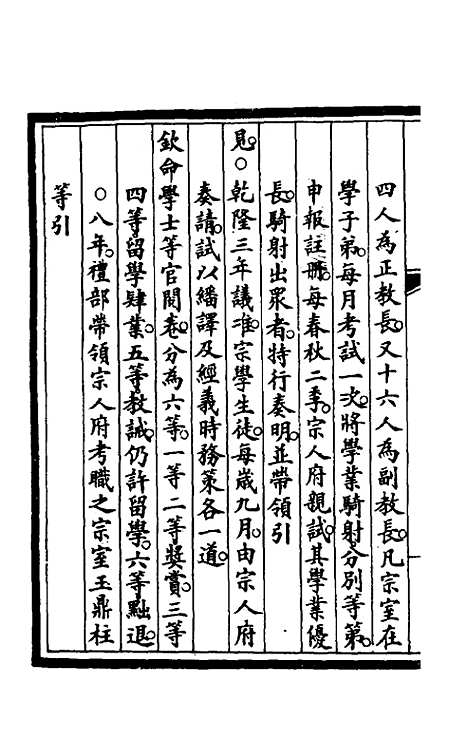 四人為正教長。又十六人為副教長。凡宗室在
學子弟。每月考試一次。將學業騎射。分別等第。
申報註冊。每春秋二季。宗人府親試。其學業優
長。騎射出眾者。特行奏明。並帶領引
見。○乾隆三年議准。宗學生徒。每歲九月。由宗人府
奏請。試以繙譯及經義時務策各一道。
欽命學士等官閱卷。分為六等。一等二等獎賞。三等
四等留學肄業。五等教誡。仍許留學。六等黜退。
○八年。禮部帶領宗人府考職之宗室玉鼎柱
等引